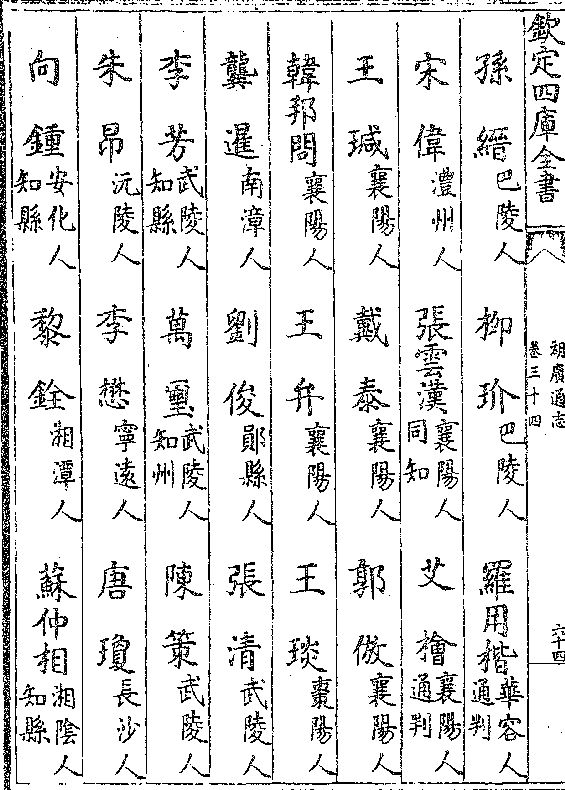 欽定四庫全書
湖廣通志
卷三十四
六十四
孫縉巴陵人 柳玠巴陵人 羅用楷華容人通判
宋偉澧州人 張雲漢襄陽人同知 艾檜襄陽人通判
王瑊襄陽人 戴泰襄陽人 郭倣襄陽人
韓邦問襄陽人 王弁襄陽人 王琰棗陽人
龔暹南漳人 劉俊鄖縣人 張清武陵人
李芳武陵人知縣 萬璽武陵人知州 陳策武陵人
朱昂沅陵人 李懋寧遠人 唐瓊長沙人
向鍾安化人知縣 黎銓湘潭人 蘇仲相湘陰人知縣